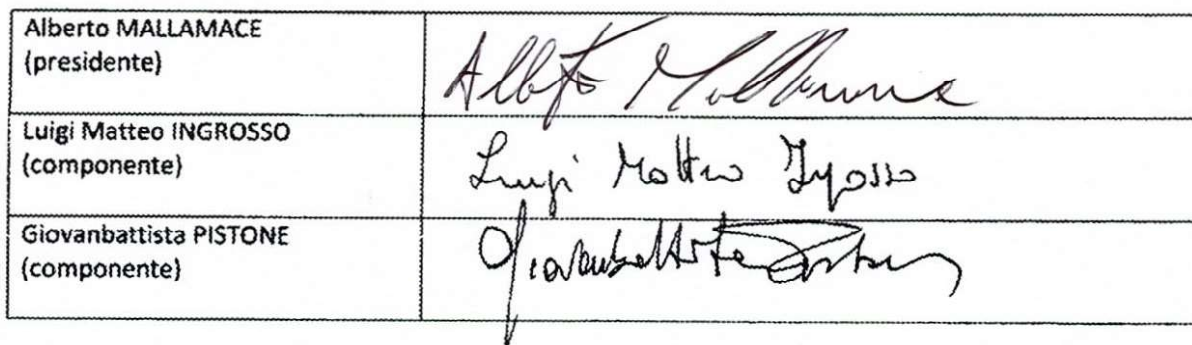 Alberto MALLAMACE
(presidente)
Alberto Mallamace
Luigi Matteo INGROSSO
(componente)
Luigi Matteo Ingrosso
Giovanbattista PISTONE
(componente)
Giovanbattista Pistone